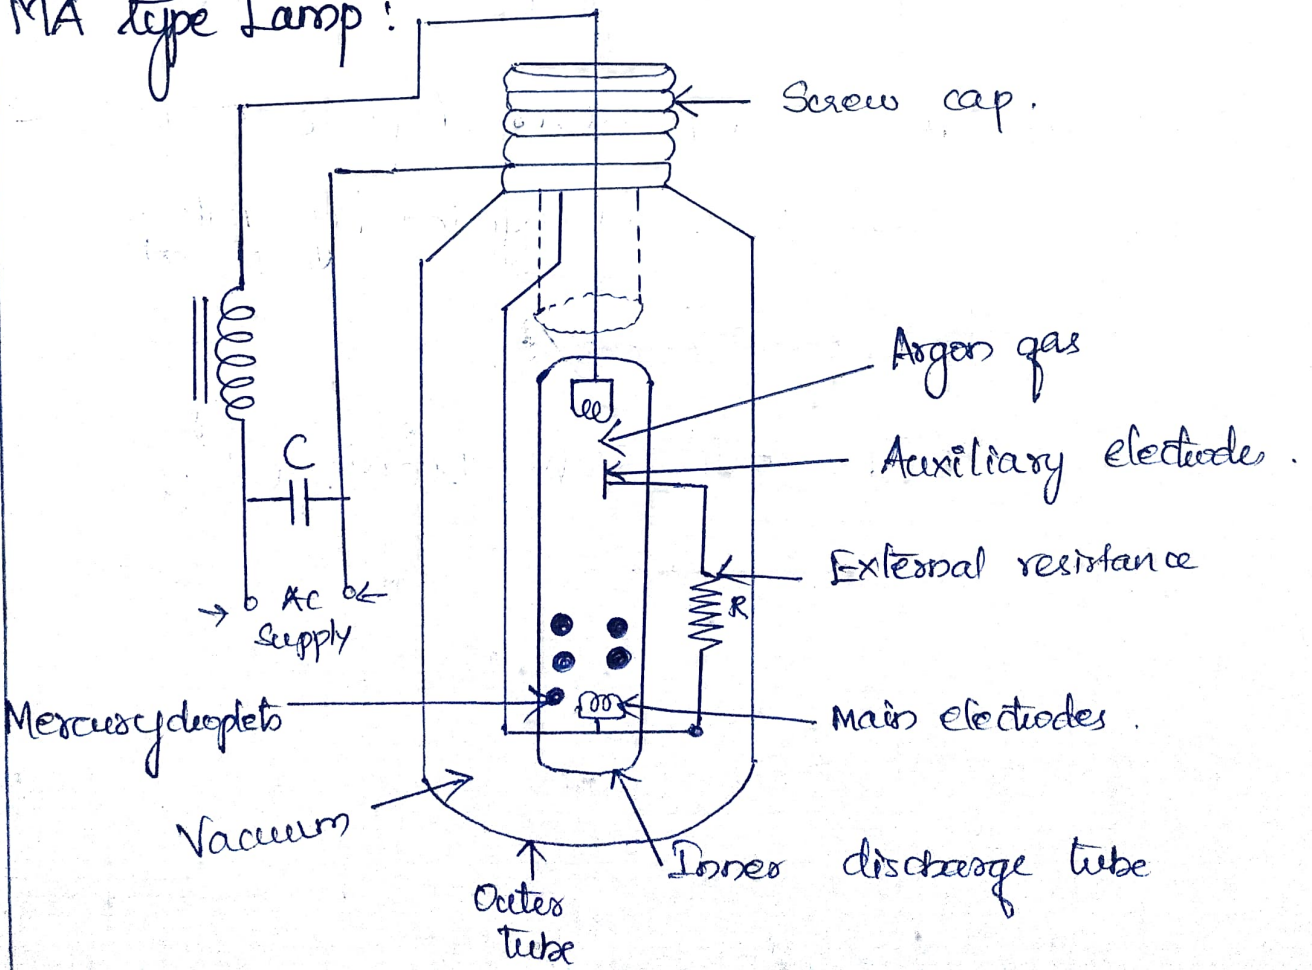 MA type Lamp :
Screw cap.
Argon gas
C
Auxiliary electrode.
External resistance
AC
R
supply
Mercury droplets
Main electrodes.
Vacuum
Inner discharge tube
Outer
tube